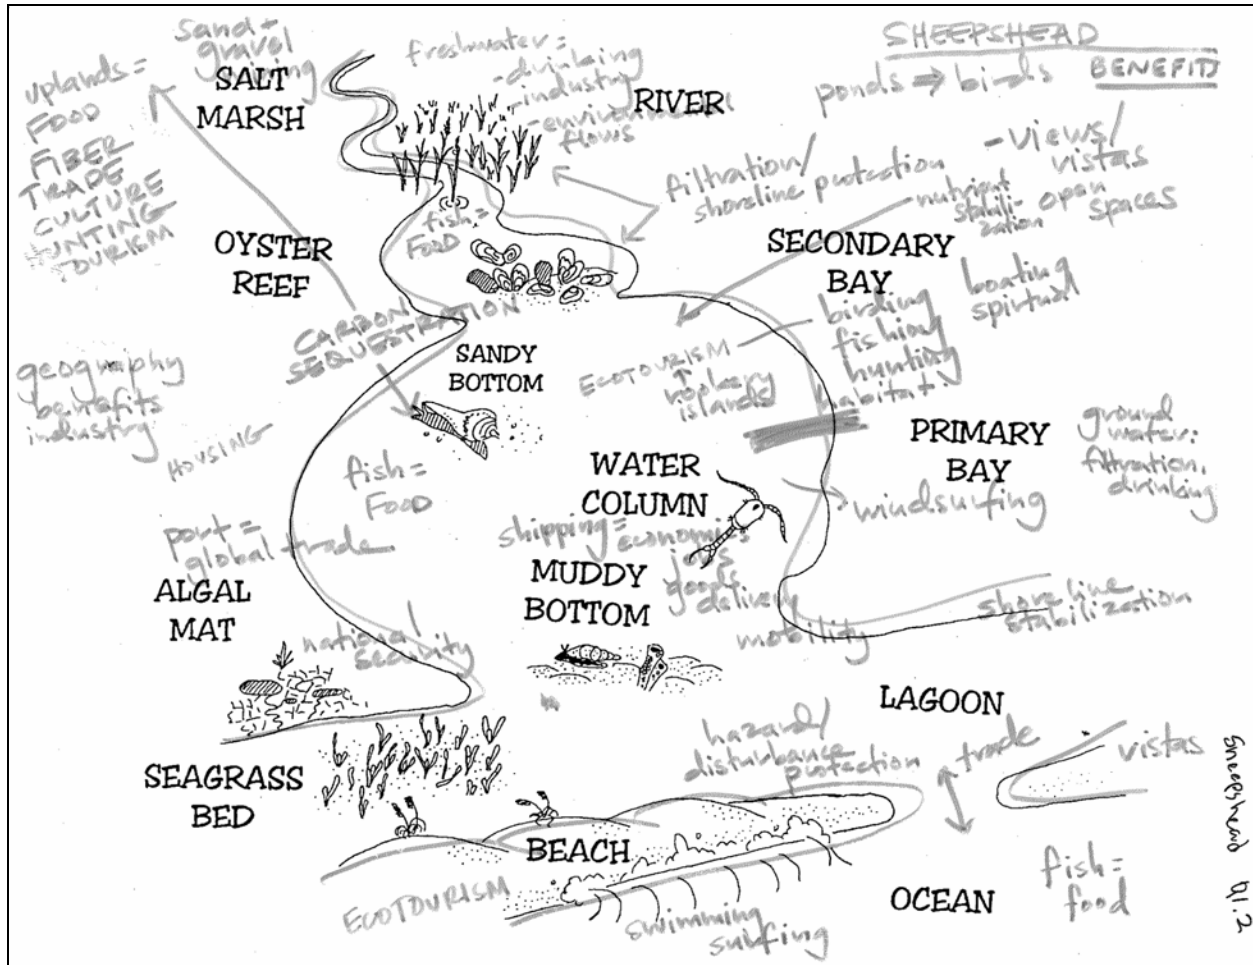 SHEEPSHEAD
BENEFITS
sand +
gravel
mining
uplands =
FOOD
FIBER
TRADE
CULTURE
HUNTING
TOURISM
SALT
MARSH
freshwater =
- drinking
- industry
- environmental
flows
RIVER
ponds → birds
- views/
vistas
open
spaces
filtration/
shoreline protection
nutrient
stabili-
zation
fish =
FOOD
OYSTER
REEF
SECONDARY
BAY
CARBON
SEQUESTRATION
SANDY
BOTTOM
ECOTOURISM
rookery
islands
birding
fishing
hunting
habitat
boating
spiritual
geography
benefits
industry
HOUSING
fish =
FOOD
WATER
COLUMN
PRIMARY
BAY
ground
water:
filtration,
drinking
windsurfing
port =
global trade
shipping = economics
jobs
goods
delivery
mobility
MUDDY
BOTTOM
ALGAL
MAT
national
security
shoreline
stabilization
LAGOON
hazard/
disturbance
protection
trade
vistas
SEAGRASS
BED
BEACH
ECOTOURISM
swimming
surfing
OCEAN
fish =
food
Sheepshead Q1.2